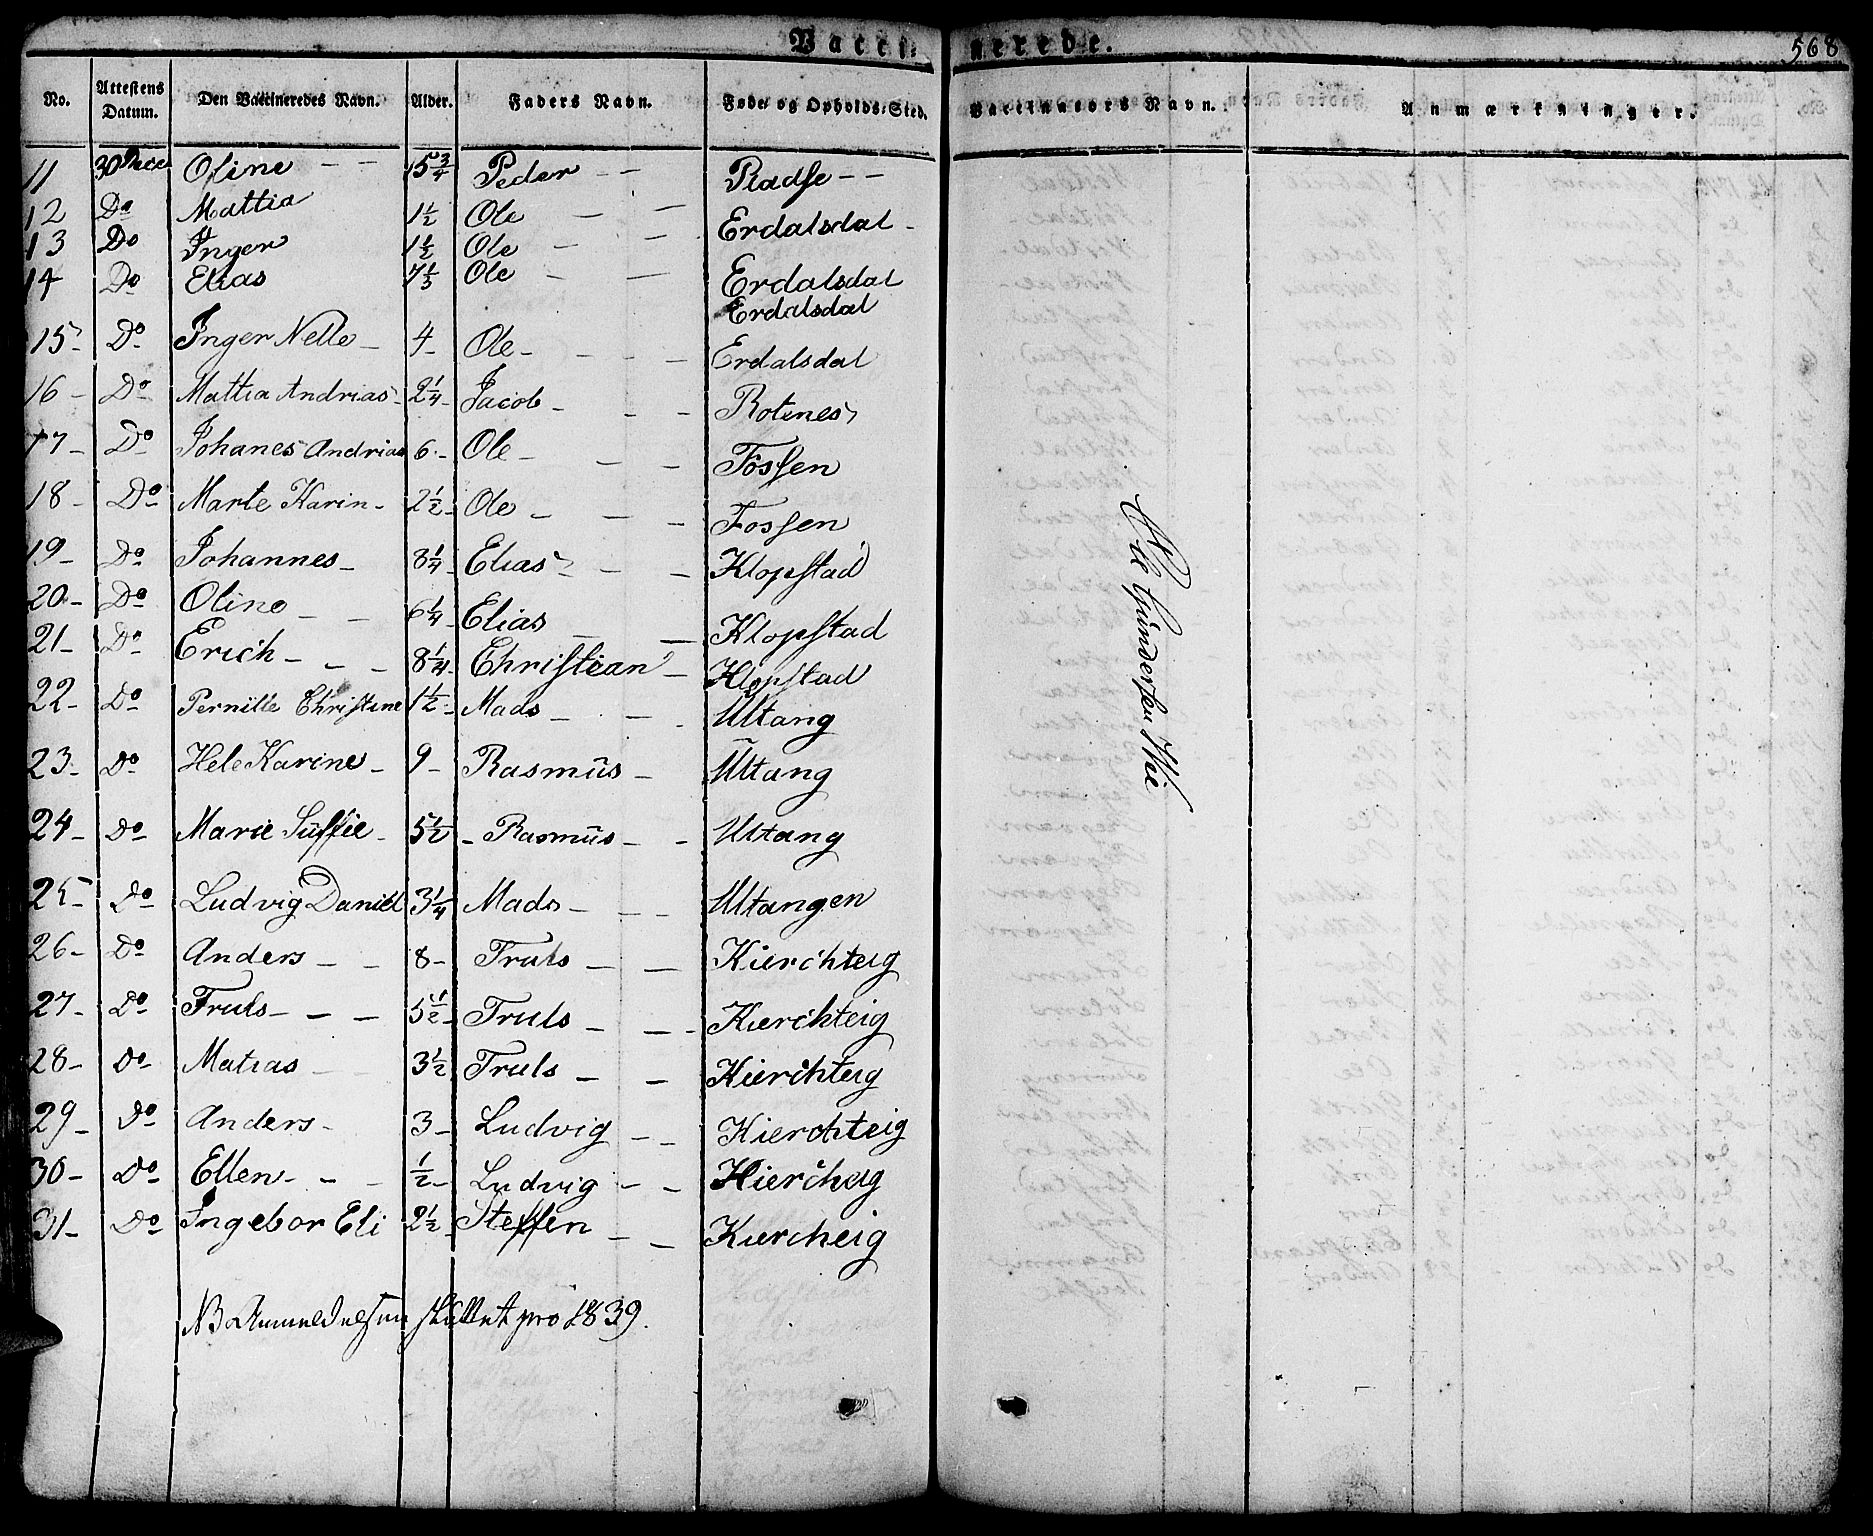 Vacci- nerede. 568
No. Attestens Datum. Den Vaccineredes Navn. Alder. Faders Navn. Føde- og Opholds-Sted. Vaccinators Navn. Anmærkninger.
11 30 Dece Oline - - 15 3/4 Peder - - Radse - -
12 Do Mattia 1 1/2 Ole - - Erdalsdal -
13 Do Inger 1 1/2 Ole - - Erdalsdal
14 Do Elias 7 1/3 Ole - - Erdalsdal
15 - Do Inger Nelle - 4 - Ole - - - - Erdalsdal
16 - Do Mattia Andrias - 2 1/4 - Jacob - - - Rotenes
17 - Do Johanes Andrias 6 - Ole - - - Fossen
18 - Do Marte Karin - 2 1/2 - Ole - - - Fossen
19 - Do Johannes - 8 1/4 - Elias - - - Klopstad
20 - Do Oline - - 6 1/4 - Elias - - Klopstad
21 - Do Erich - - - 8 1/4 - Christian - Klopstad
22 - Do Pernille Christine 1 1/2 - Mads - - - Ultang
23 - Do Hele Karine - 9 - Rasmus - Ultang
24 - Do Marie Suffie - 5 1/2 - Rasmus - - Ultang
25 - Do Ludvig Daniel 3 1/4 Mads - - - Ultangen
26 - Do Anders - - 8 - Truls - - Kierchteig
27 - Do Truls - - - 5 1/2 - Truls - - - Kierchteig
28 - Do Matias 3 1/2 Truls - - Kierchteig
29 - Do Anders - 3 - Ludvig - - Kierchteig
30 - Do Ellen - - - 1/2 - Ludvig - - Kiercheig
31 - Do Ingebor Eli 2 1/2 - Steffen - - Kiercheig
Ole Gundersen Wii
NB Anmeldelsen skullet pro 1839.